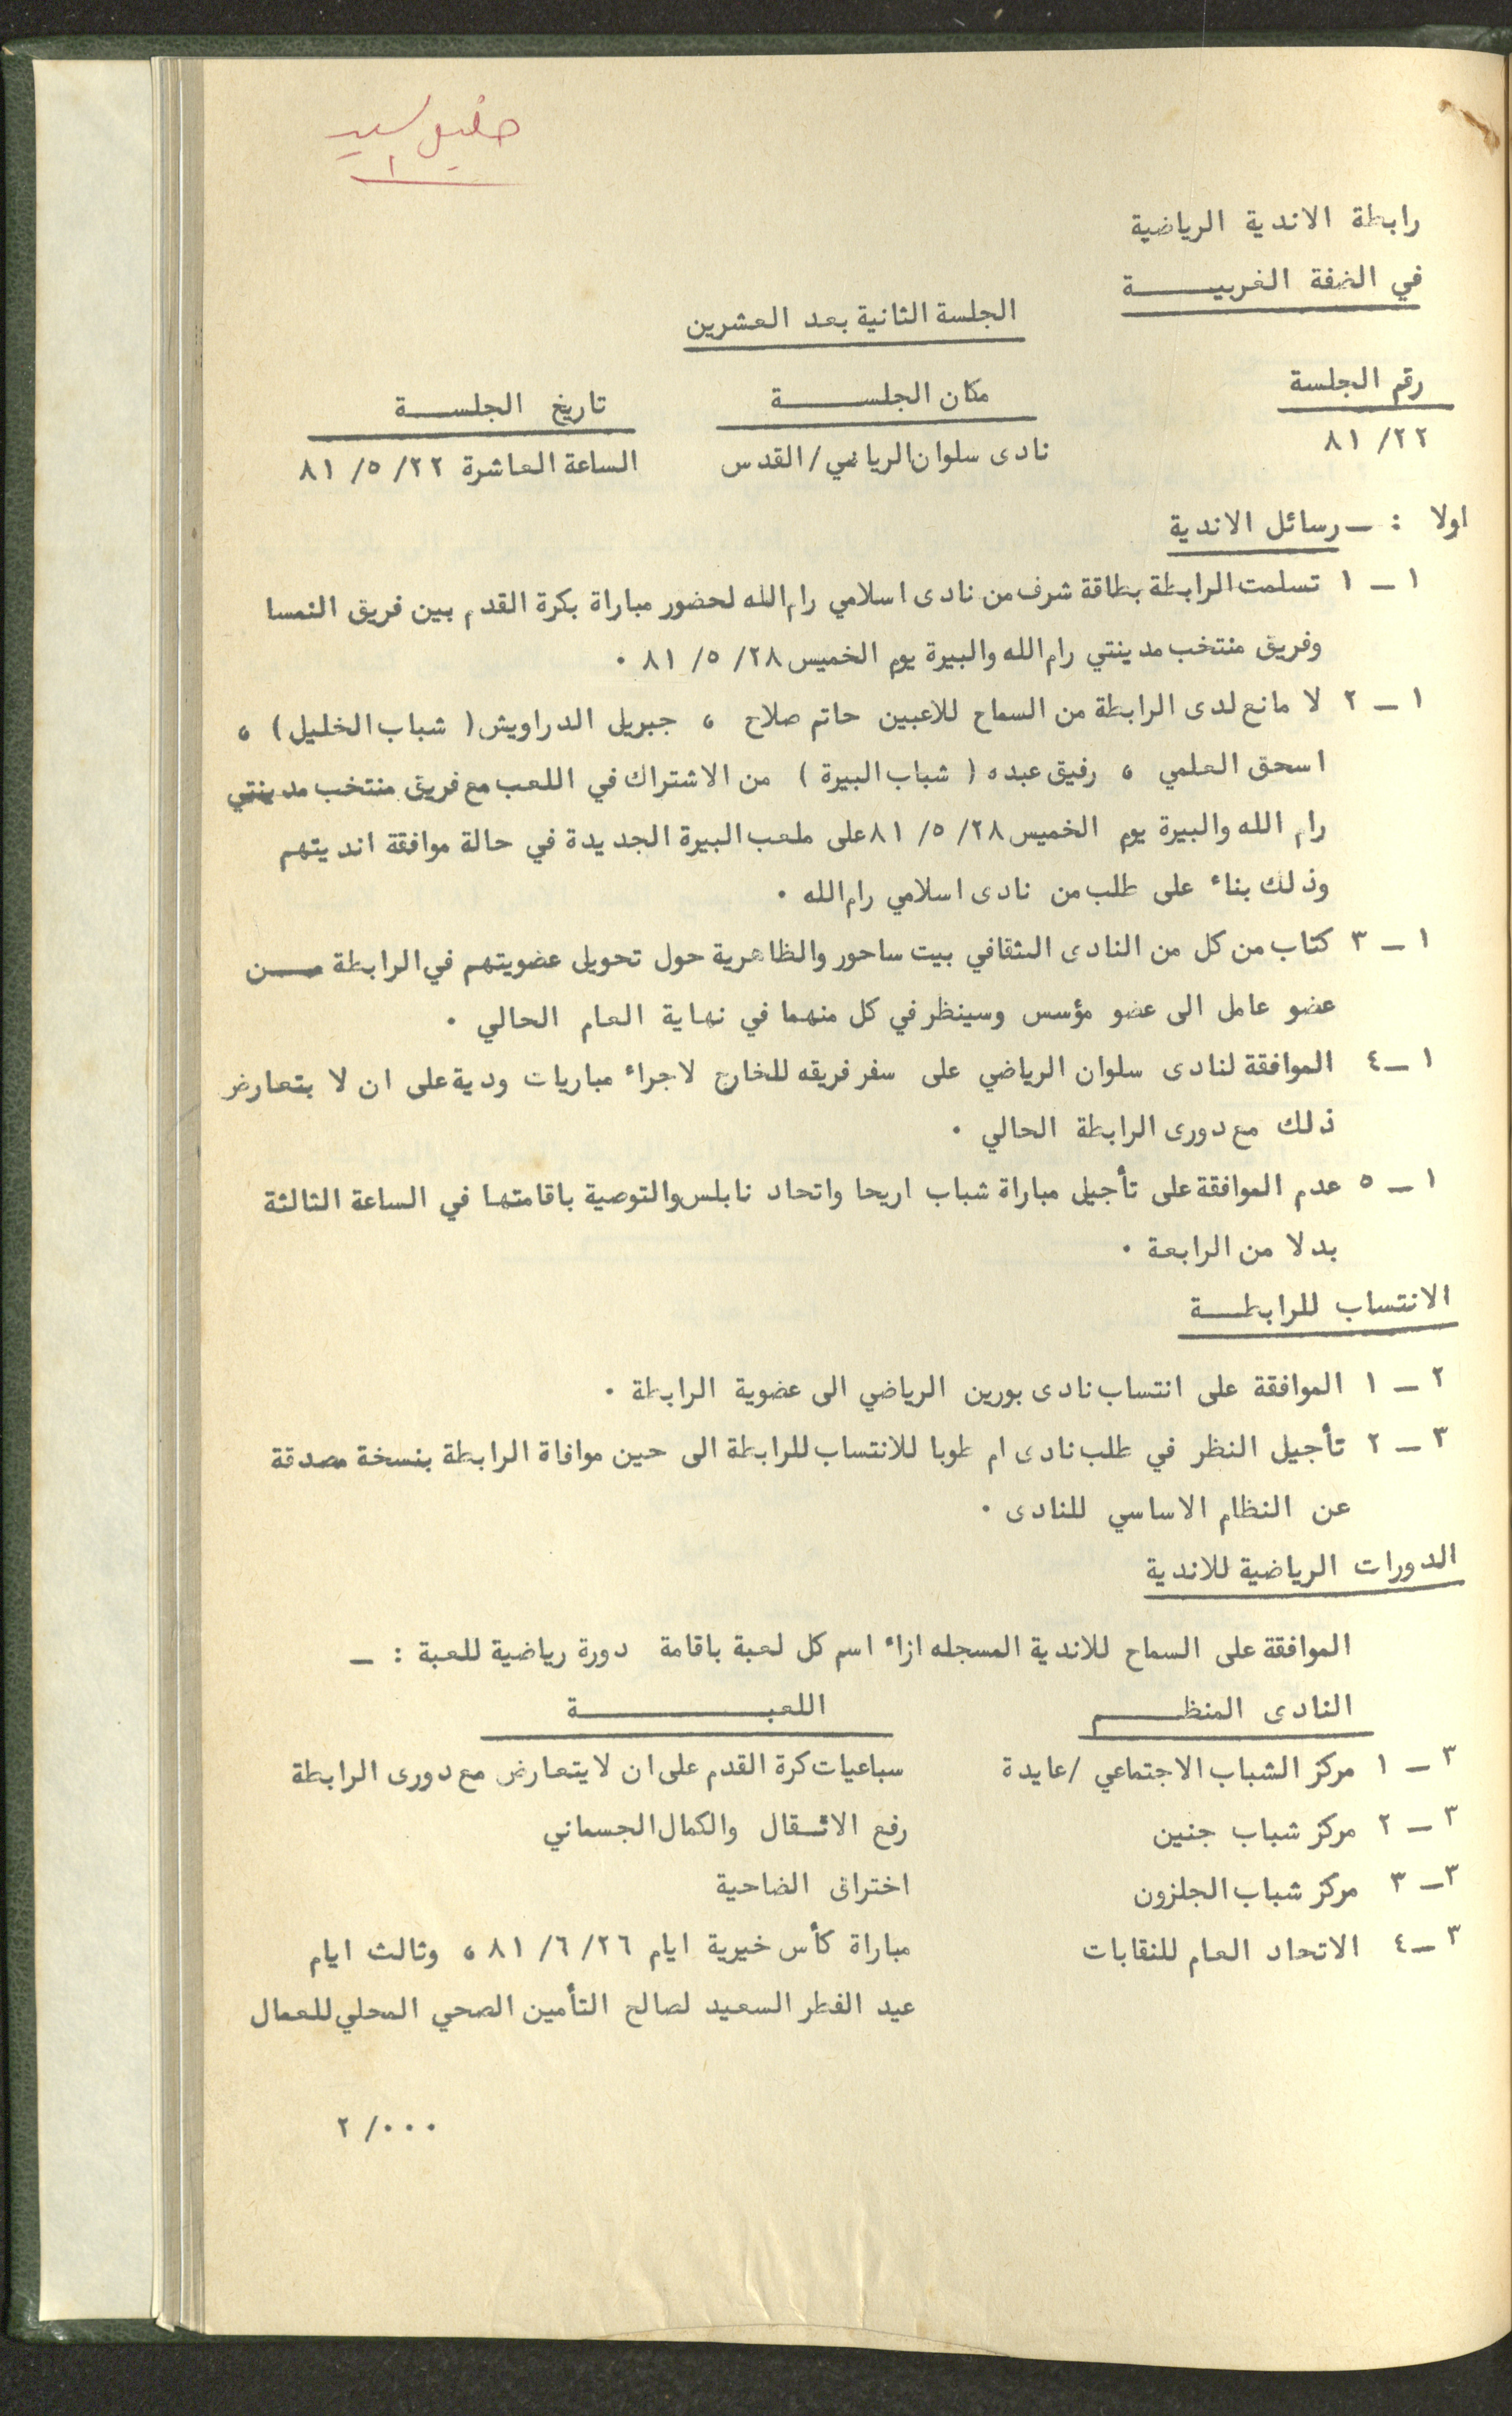 رابطة الاندية الرياضية
في الضفة الغربيـــــة
الجلسة الثانية بعد العشرين
رقم الجلسة
مكان الجلســـــة
تاريخ الجلســـة
٢٢/ ٨١
نادى سلوان الرياضي/ القدس
الساعة العاشرة ٢٢/ ٥/ ٨١
اولا : ــ رسائل الاندية
١ ــ ١ تسلمت الرابطة بطاقة شرف من نادى اسلامي رام الله لحضور مباراة بكرة القدم بين فريق النمسا
وفريق منتخب مدينتي رام الله والبيرة يوم الخميس ٢٨/ ٥/ ٨١ .
١ ــ ٢ لا مانع لدى الرابطة من السماح للاعبين حاتم صلاح ، جبريل الدراويش ( شباب الخليل ) ،
اسحق العلمي ، رفيق عبده ( شباب البيرة ) من الاشتراك في اللعب مع فريق منتخب مدينتي
رام الله والبيرة يوم الخميس ٢٨/ ٥/ ٨١ على ملعب البيرة الجديدة في حالة موافقة انديتهم
وذلك بناء على طلب من نادى اسلامي رام الله .
١ ــ ٣ كتاب من كل من النادى الثقافي بيت ساحور والظاهرية حول تحويل عضويتهم في الرابطة مــــن
عضو عامل الى عضو مؤسس وسينظر في كل منهما في نهاية العام الحالي .
١ ــ ٤ الموافقة لنادى سلوان الرياضي على سفر فريقه للخارج لاجراء مباريات ودية على ان لا بتعارض
ذلك مع دورى الرابطة الحالي .
١ ــ ٥ عدم الموافقة على تأجيل مباراة شباب اريحا واتحاد نابلس والتوصية باقامتها في الساعة الثالثة
بدلا من الرابعة .
الانتساب للرابطــــة
٢ ــ ١ الموافقة على انتساب نادى بورين الرياضي الى عضوية الرابطة .
٣ ــ ٢ تأجيل النظر في طلب نادى ام طوبا للانتساب للرابطة الى حين موافاة الرابطة بنسخة مصدقة
عن النظام الاساسي للنادى .
الدورات الرياضية للاندية
الموافقة على السماح للاندية المسجله ازاء اسم كل لعبة باقامة دورة رياضية للعبة : ــ
النادى المنظـــــــم
اللعبــــــــــــــة
٣ ــ ١ مركز الشباب الاجتماعي /عايدة
سباعيات كرة القدم على ان لا يتعارض مع دورى الرابطة
٣ ــ ٢ مركز شباب جنين
رفع الاثـقال والكمال الجسماني
٣ ــ ٣ مركز شباب الجلزون
اختراق الضاحية
٣ ــ ٤ الاتحاد العام للنقابات
مباراة كأس خيرية ايام ٢٦/ ٦/ ٨١ ، وثالث ايام
عيد الفطر السعيد لصالح التأمين الصحي المحلي للعمال
٢ /...